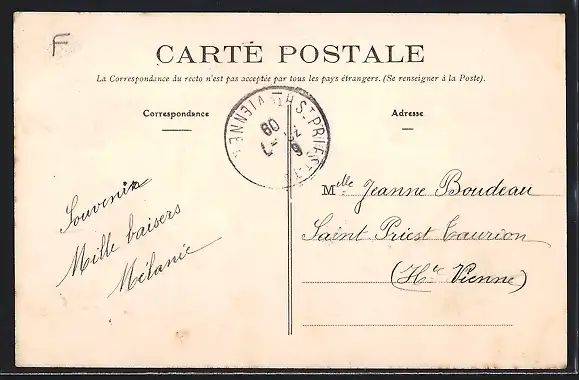 F
CARTE POSTALE
La Correspondance du recto n'est pas acceptée par tous les pays étrangers. (Se renseigner à la Poste).
Correspondance
Adresse
ST PRIEST
HTE VIENNE
09
Souvenir
Mille baisers
Mélanie
Melle Jeanne Boudeau
Saint Priest Taurion
(Hte Vienne)